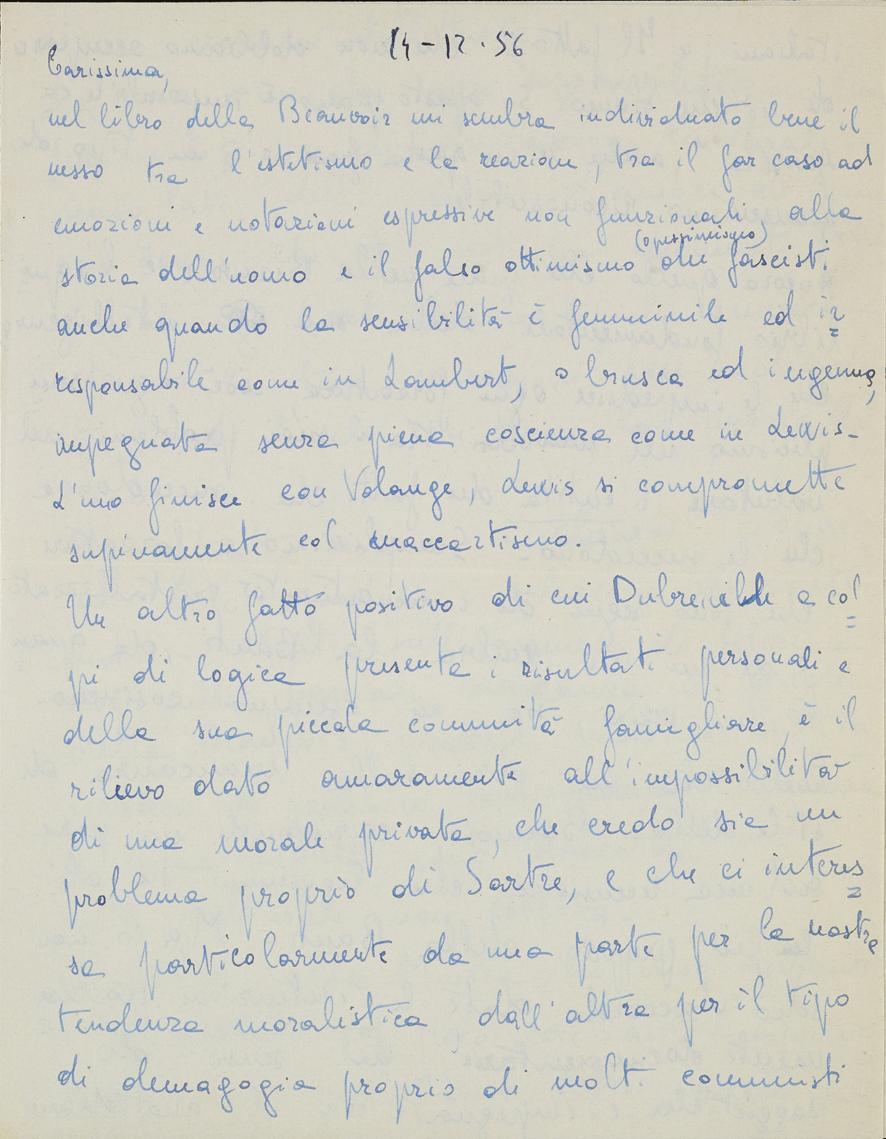 14-12-56
Carissima,
nel libro della Beauvoir mi sembra individuato bene il
nesso tra l'estetismo e la reazione, tra il far caso ad
emozioni e notazioni espressive non funzionali alla
(o pessimismo)
storia dell'uomo e il falso ottimismo dei fascisti.
anche quando la sensibilità è femminile ed ir=
responsabile come in Lambert, o brusca ed ingenua,
impegnata senza piena coscienza come in Lewis-
L'uno finisce con Volange, Lewis si compromette
supinamente col maccartismo.
Un altro fatto positivo di cui Dubreuilh a col=
pi di logica presenta i risultati personali e
della sua piccola comunità famigliare, è il
rilievo dato amaramente all'impossibilità
di una morale privata, che credo sia un
problema proprio di Sartre, e che ci interes=
sa particolarmente da una parte per la nostra
tendenza moralistica dall'altra per il tipo
di demagogia proprio di molti comunisti